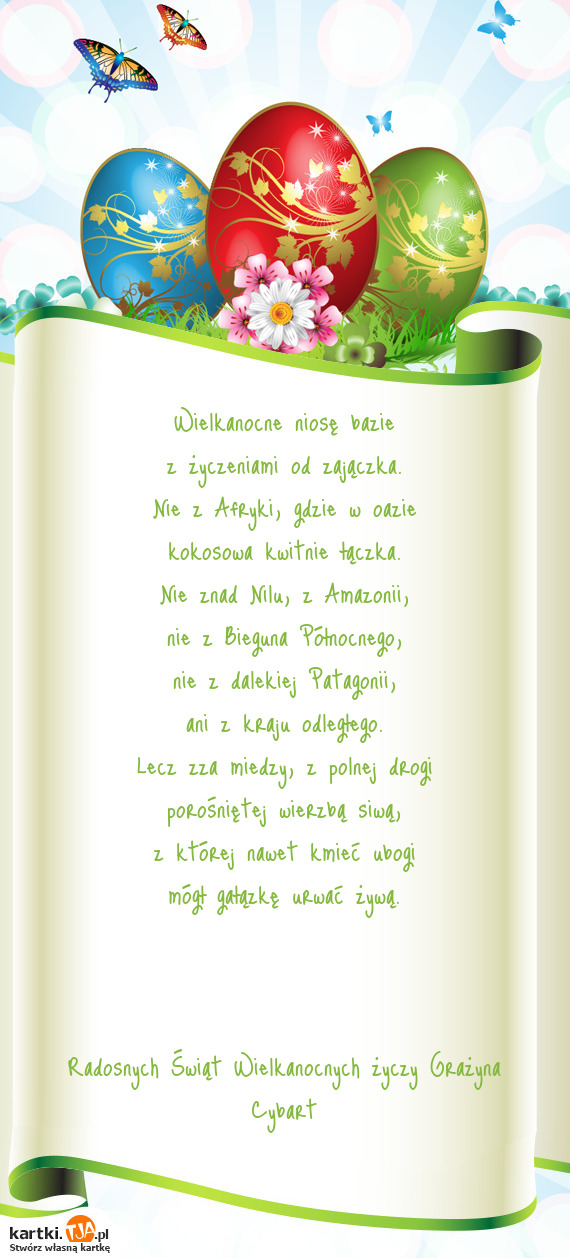 Wielkanocne niosę bazie
z życzeniami od zajączka.
Nie z Afryki, gdzie w oazie
kokosowa kwitnie łączka.
Nie znad Nilu, z Amazonii,
nie z Bieguna Północnego,
nie z dalekiej Patagonii,
ani z kraju odległego.
Lecz zza miedzy, z polnej drogi
porośniętej wierzbą siwą,
z której nawet kmieć ubogi
mógł gałązkę urwać żywą.
Radosnych Świąt Wielkanocnych życzy Grażyna
Cybart
kartki.TJA.pl
Stwórz własną kartkę